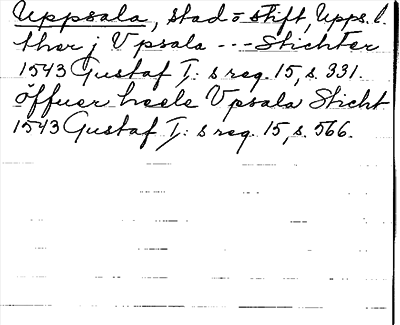 Uppsala, stad o stift, Upps. l.
ther j Vpsala --- Stichter
1543 Gustaf I: s reg. 15, s. 331.
öffuer heele Vpsala Sticht
1543 Gustaf I: s reg. 15, s. 566.